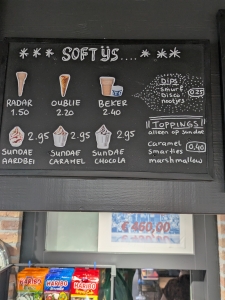 *** SOFTYS.... ***
RADAR OUBLIE BEKER
1.50 2.20 2.40
DIPS
smurf
Disco
nootjes
0.25
2.95 2.95 2.95
SUNDAE SUNDAE SUNDAE
AARDBEI CARAMEL CHOCOLA
!!TOPPINGS!!
alleen op sundae
caramel
smarties
marshmallow
0,40
HARIBO HARIBO